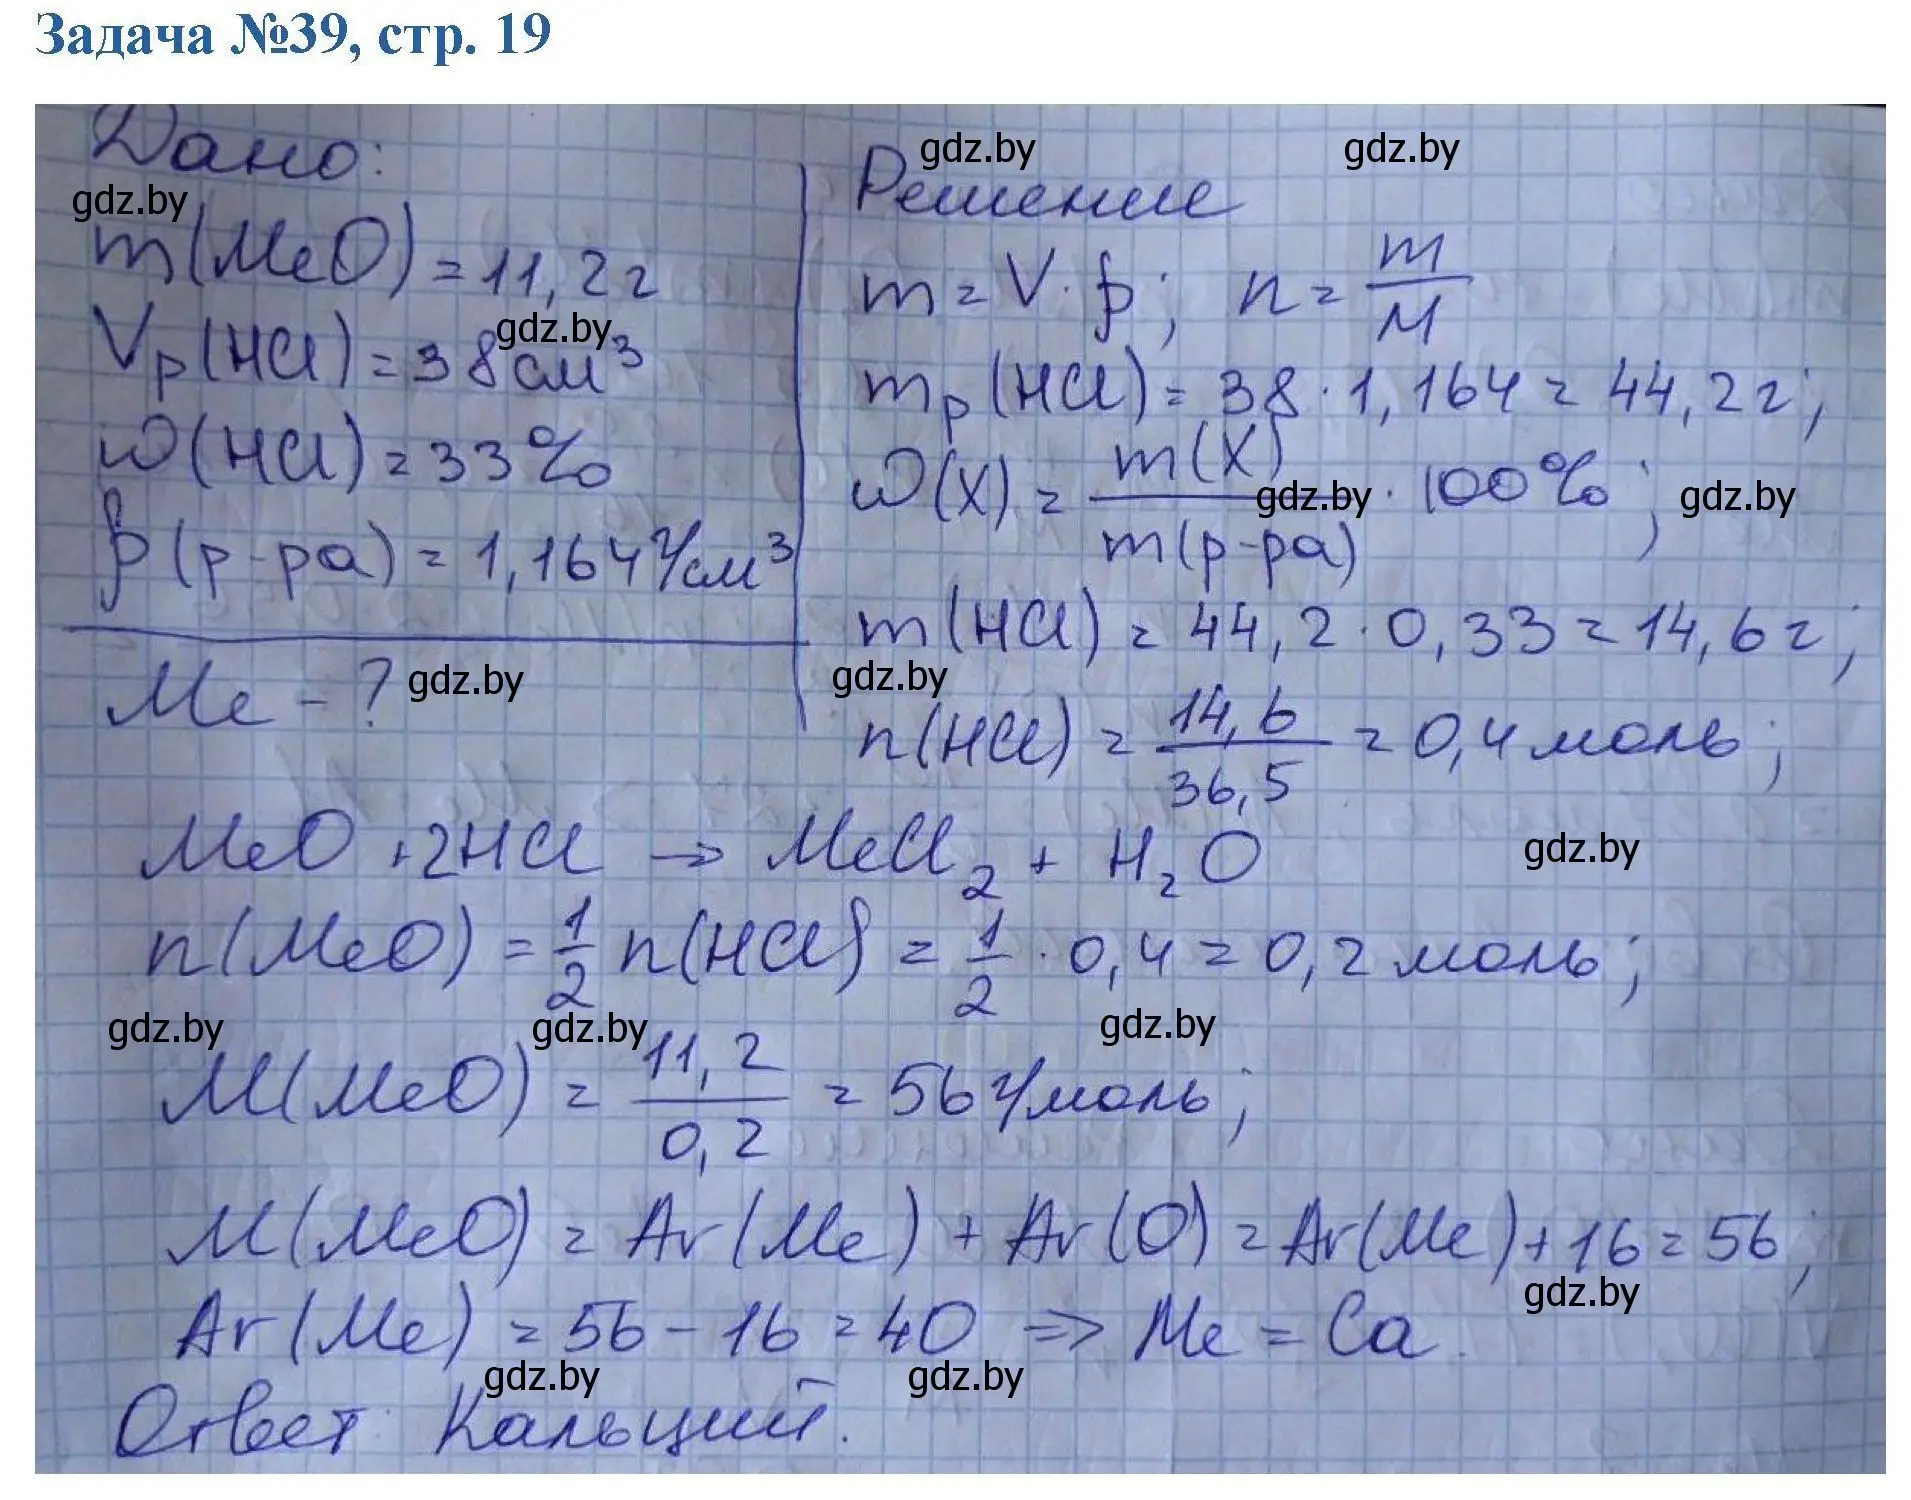 Задача №39, стр. 19
Дано:
gdz.by
m(MeO) = 11,2 г
Vр(HCl) = 38 см³
gdz.by
ω(HCl) = 33%
ρ(р-ра) = 1,164 г/см³
Me - ?
gdz.by
Решение
gdz.by
gdz.by
m = V · ρ; n = m/M
mр(HCl) = 38 · 1,164 = 44,2 г;
ω(X) = m(X)/m(р-ра) · 100%;
gdz.by
gdz.by
m(HCl) = 44,2 · 0,33 = 14,6 г;
gdz.by
n(HCl) = 14,6/36,5 = 0,4 моль;
MeO + 2HCl → MeCl₂ + H₂O
gdz.by
n(MeO) = 1/2 n(HCl) = 1/2 · 0,4 = 0,2 моль;
gdz.by
gdz.by
gdz.by
M(MeO) = 11,2/0,2 = 56 г/моль;
M(MeO) = Ar(Me) + Ar(O) = Ar(Me) + 16 = 56;
gdz.by
Ar(Me) = 56 - 16 = 40 => Me = Ca.
gdz.by
gdz.by
Ответ: Кальций.